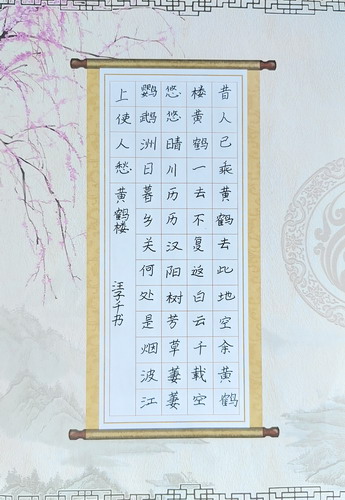 昔人已乘黄鹤去此地空余黄鹤
楼黄鹤一去不复返白云千载空
悠悠晴川历历汉阳树芳草萋萋
鹦鹉洲日暮乡关何处是烟波江
上使人愁 黄鹤楼 汪子千书